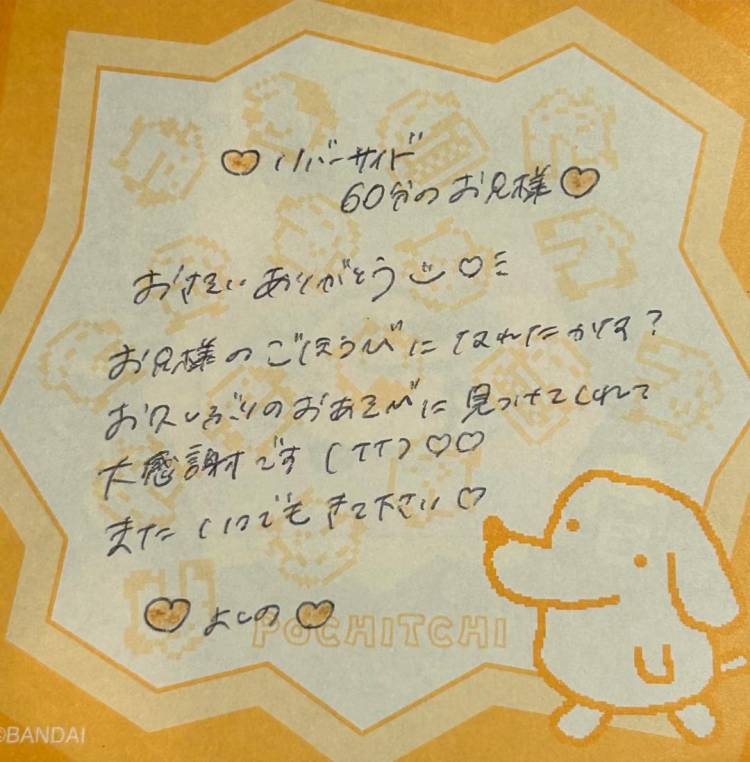 ♡リバーサイド
60分のお兄様♡
おさそいありがとう♡
お兄様のごほうびになれたかな?
お久しぶりのおあそびに見つけてくれて
大感謝です(TT)♡♡
またいつでもきて下さい♡
♡よしの♡
POCHITCHI
©BANDAI